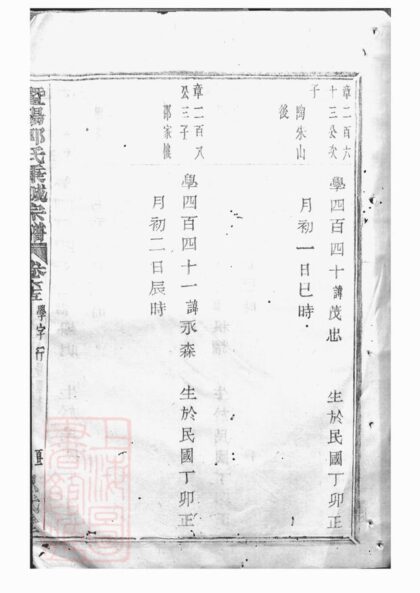 章二百六
十三公次
子
陶朱山
後
學四百四十諱茂忠　生於民國丁卯正
月初一日巳時
章二百又
公三子
學四百四十一諱永森　生於民國丁卯正
月初二日辰時
暨陽邱氏宗譜
學字行
上海圖書館藏